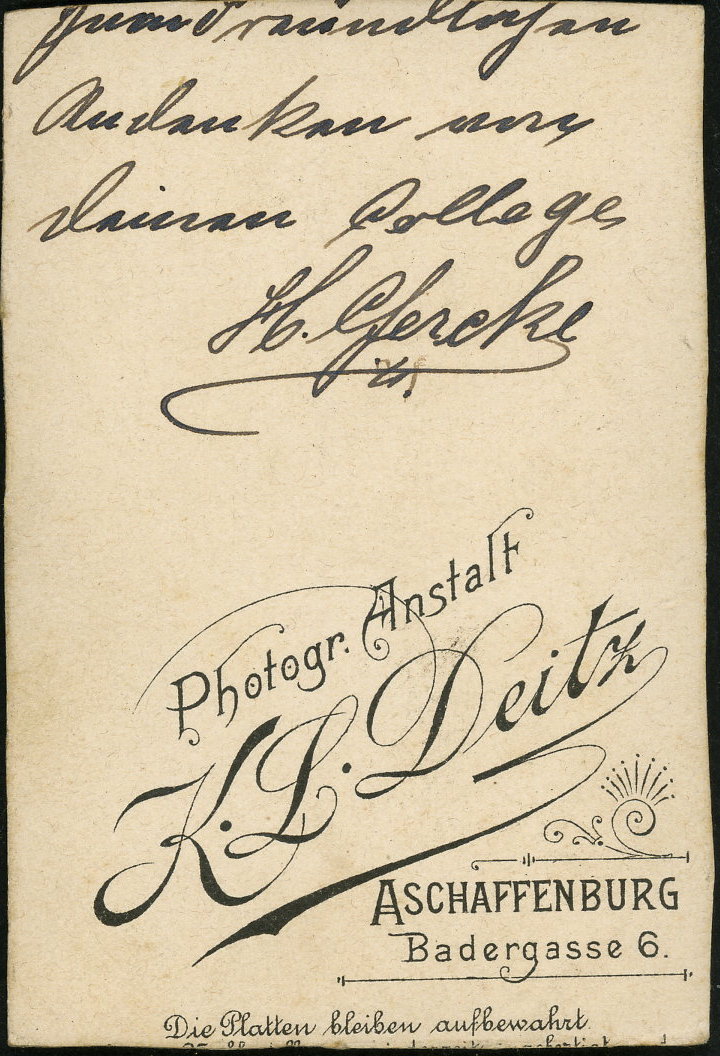 zum freundlichen
Andenken von
deinen College
H. Gercke
Photogr. Anstalt
K. L. Deitz
ASCHAFFENBURG
Badergasse 6.
Die Platten bleiben aufbewahrt